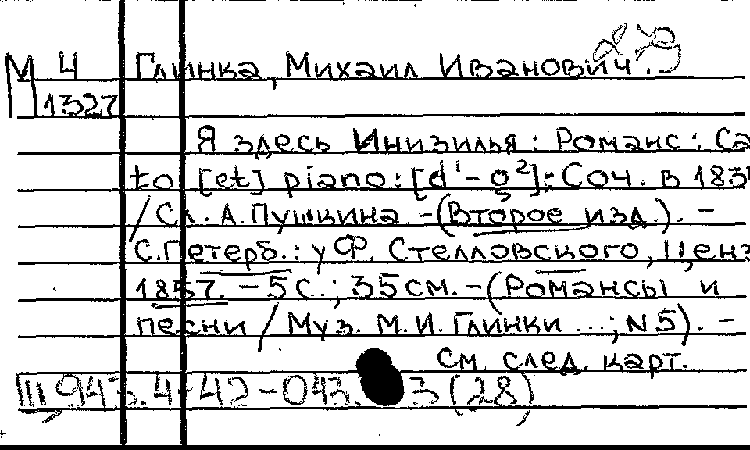 М 4 Глинка, Михаил Иванович.
1327
Я здесь Инизилья: Романс: Ca
to [et] piano: [d¹-g²]: Соч. в 183
/Сл. А. Пушкина -(Второе изд.). -
С.Петерб.: у Ф. Стелловского, Ценз
1857. - 5 с.; 35 см. - (Романсы и
песни / Муз. М. И. Глинки ...; N 5). -
См. след. карт.
III 943.4-42-043. 3(28)